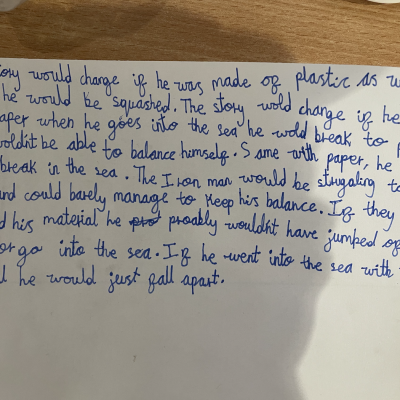 ory would change if he was made of plastic as w
he would be squashed. The story wold change if he
aper when he goes into the sea he wold break to p
woldn't be able to balance himself. Same with paper, he
break in the sea. The Iron man would be strugaling to
nd could barely manage to keep his balance. If they
d his material he proably wouldn't have jumped of
or go into the sea. If he went into the sea with
l he would just fall apart.